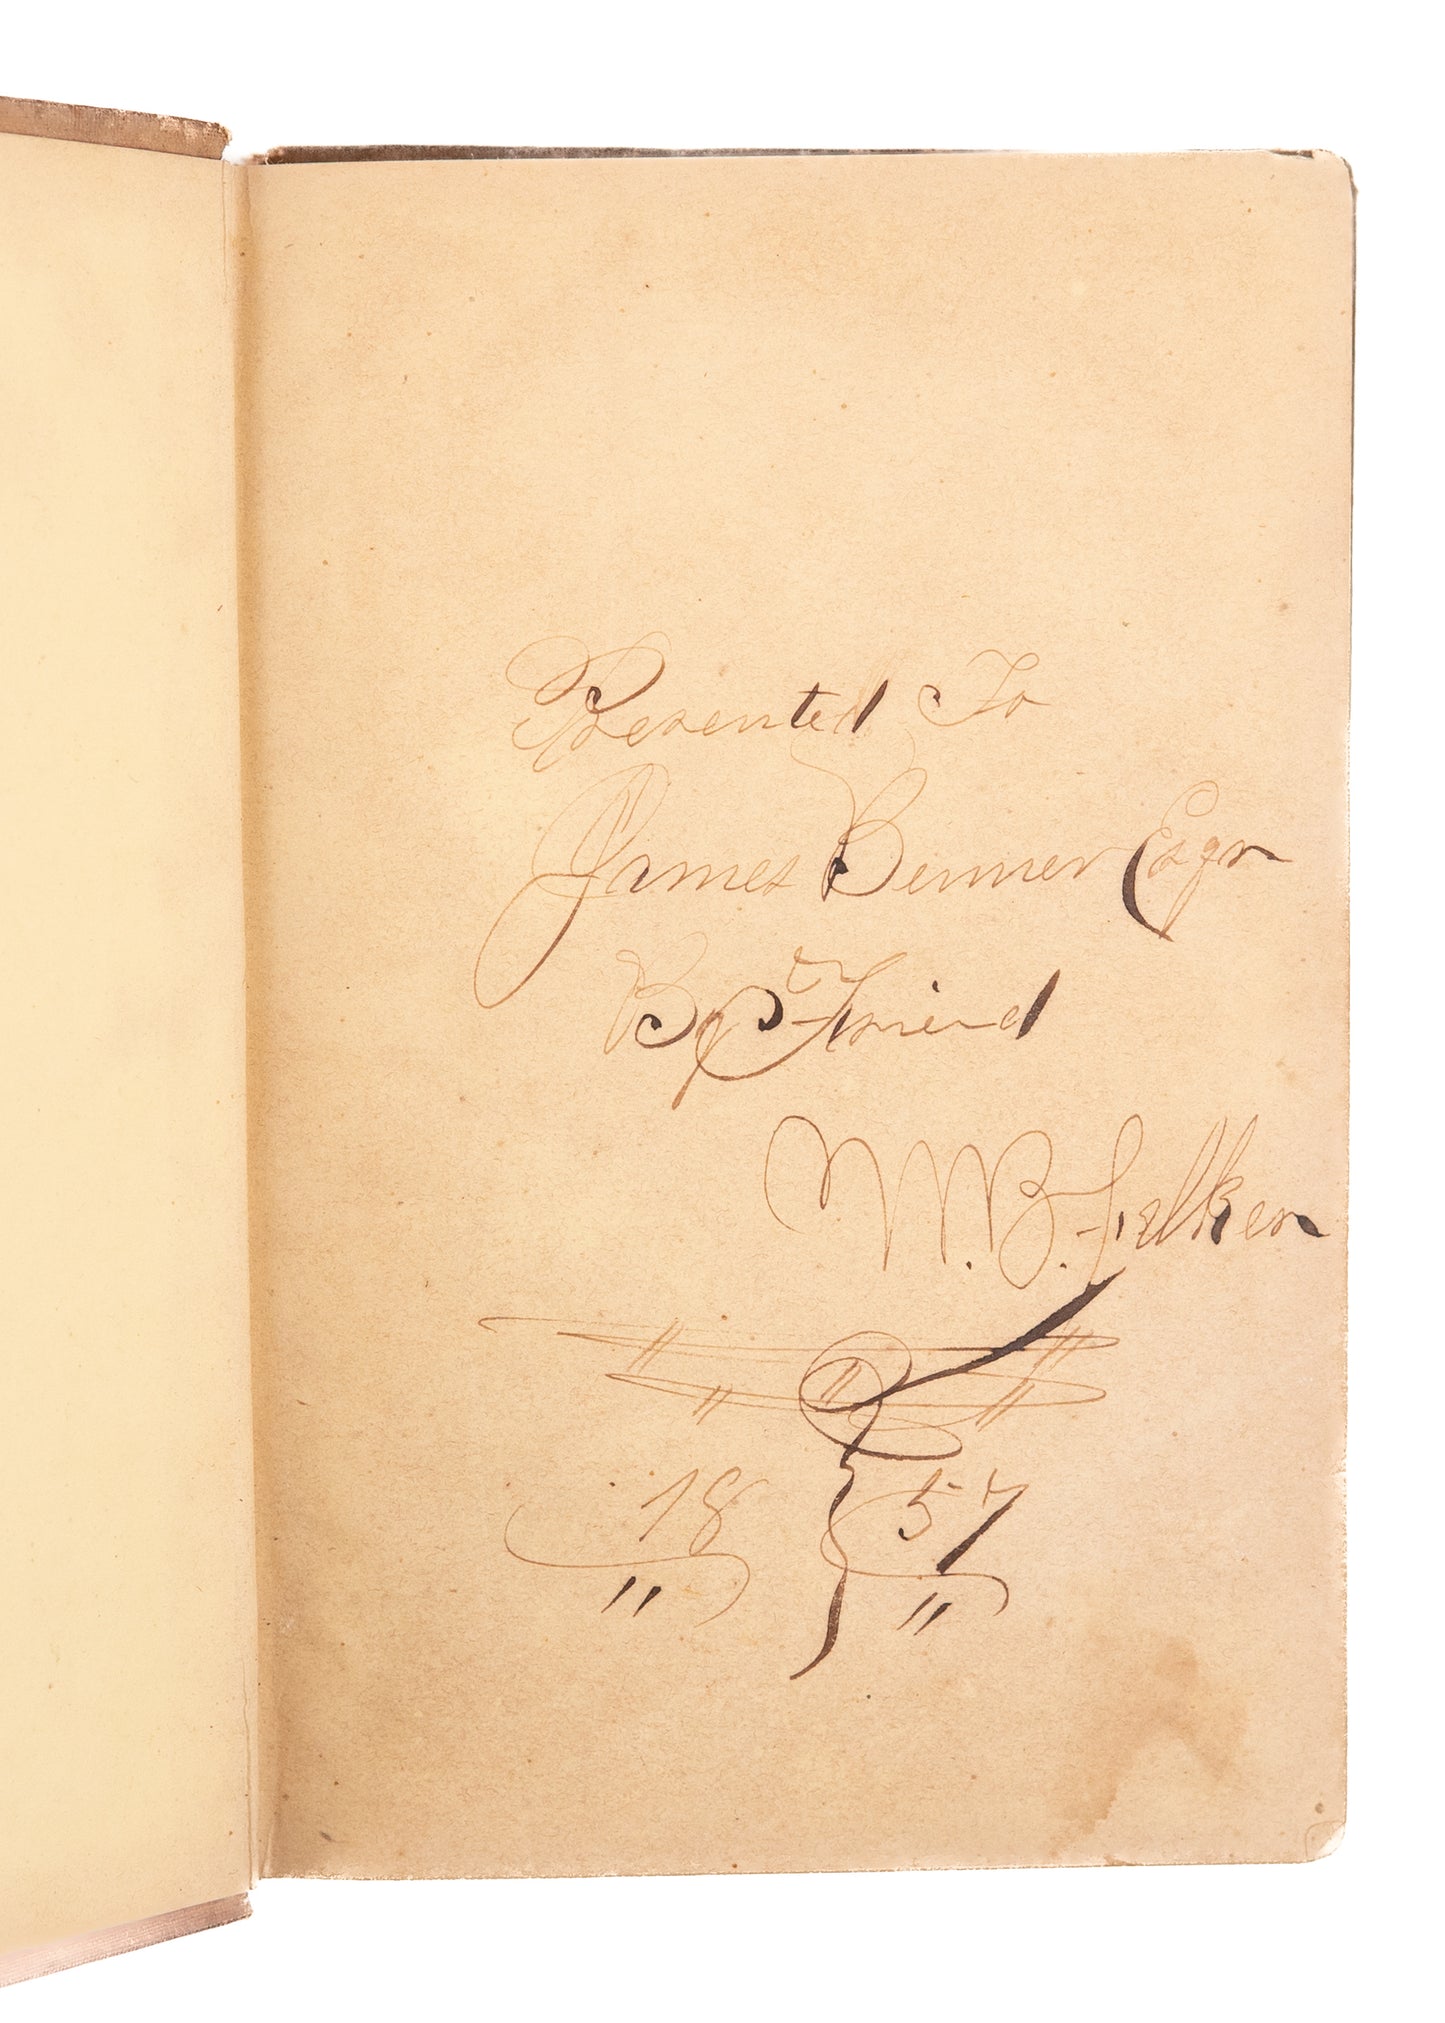 Presented To
James Benner Esqr
By Friend
W. B. Felker
18 57